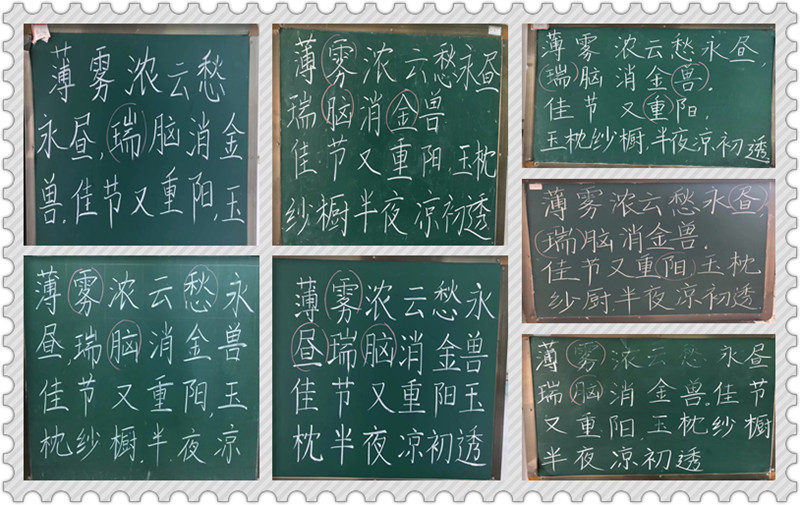 薄雾浓云愁
永昼,瑞脑消金
兽,佳节又重阳,玉
薄雾浓云愁永昼
瑞脑消金兽
佳节又重阳,玉枕
纱橱半夜凉初透
薄雾浓云愁永昼,
瑞脑消金兽.
佳节又重阳,
玉枕纱橱,半夜凉初透
薄雾浓云愁永昼,
瑞脑消金兽.
佳节又重阳,玉枕
纱厨,半夜凉初透
薄雾浓云愁永
昼,瑞脑消金兽
佳节又重阳,玉
枕纱橱,半夜凉
薄雾浓云愁永
昼瑞脑消金兽
佳节又重阳玉
枕半夜凉初透
薄雾浓云愁永昼
瑞脑消金兽,佳节
又重阳,玉枕纱橱
半夜凉初透